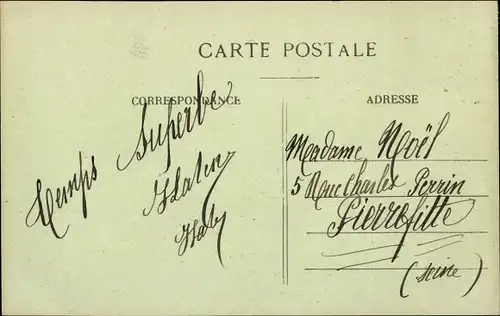 CARTE POSTALE
CORRESPONDANCE
Temps Superbe
ADRESSE
Madame Noël
5 Rue Charles Perrin
Pierrefitte
(Seine)